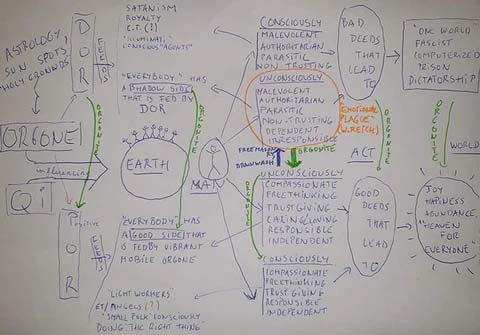 ASTROLOGY,
SUN SPOTS
HOLY GROUNDS
ORGONE
influencing
QI
DOR
FEEDS
Positive
POR
FEEDS
SATANISM
ROYALTY
E.T. (?)
"ILLUMINATI"
CONSCIOUS "AGENTS"
"EVERYBODY" HAS
A SHADOW SIDE
THAT IS FED BY
DOR
EARTH
MAN
"EVERYBODY" HAS
A GOOD SIDE THAT
IS FED BY VIBRANT
MOBILE ORGONE
"LIGHT WORKERS"
ET/ANGELS (?)
"SMALL FOLK" CONSCIOUSLY
DOING THE RIGHT THING
ORGONITE
ORGONITE
CONSCIOUSLY
MALEVOLENT
AUTHORITARIAN
PARASITIC
NON-TRUSTING
UNCONSCIOUSLY
MALEVOLENT
AUTHORITARIAN
PARASITIC
NON-TRUSTING
DEPENDENT
IRRESPONSIBLE
EMOTIONAL
PLAGUE"
(W.REICH)
FREEMASONRY
BRAINWASH
ORGONITE
UNCONSCIOUSLY
COMPASSIONATE
FREETHINKING
TRUSTGIVING
CARING/LOVING
RESPONSIBLE
INDEPENDENT
ORGONITE
CONSCIOUSLY
COMPASSIONATE
FREETHINKING
TRUST GIVING
RESPONSIBLE
INDEPENDENT
BAD
DEEDS
THAT
LEAD
TO
ACT
ORGONITE
GOOD
DEEDS
THAT
LEAD
TO
"ONE WORLD
FASCIST
COMPUTERIZED
PRISON
DICTATORSHIP"
ORGONITE
WORLD
JOY
HAPPINESS
ABUNDANCE
"HEAVEN
FOR
EVERYONE"